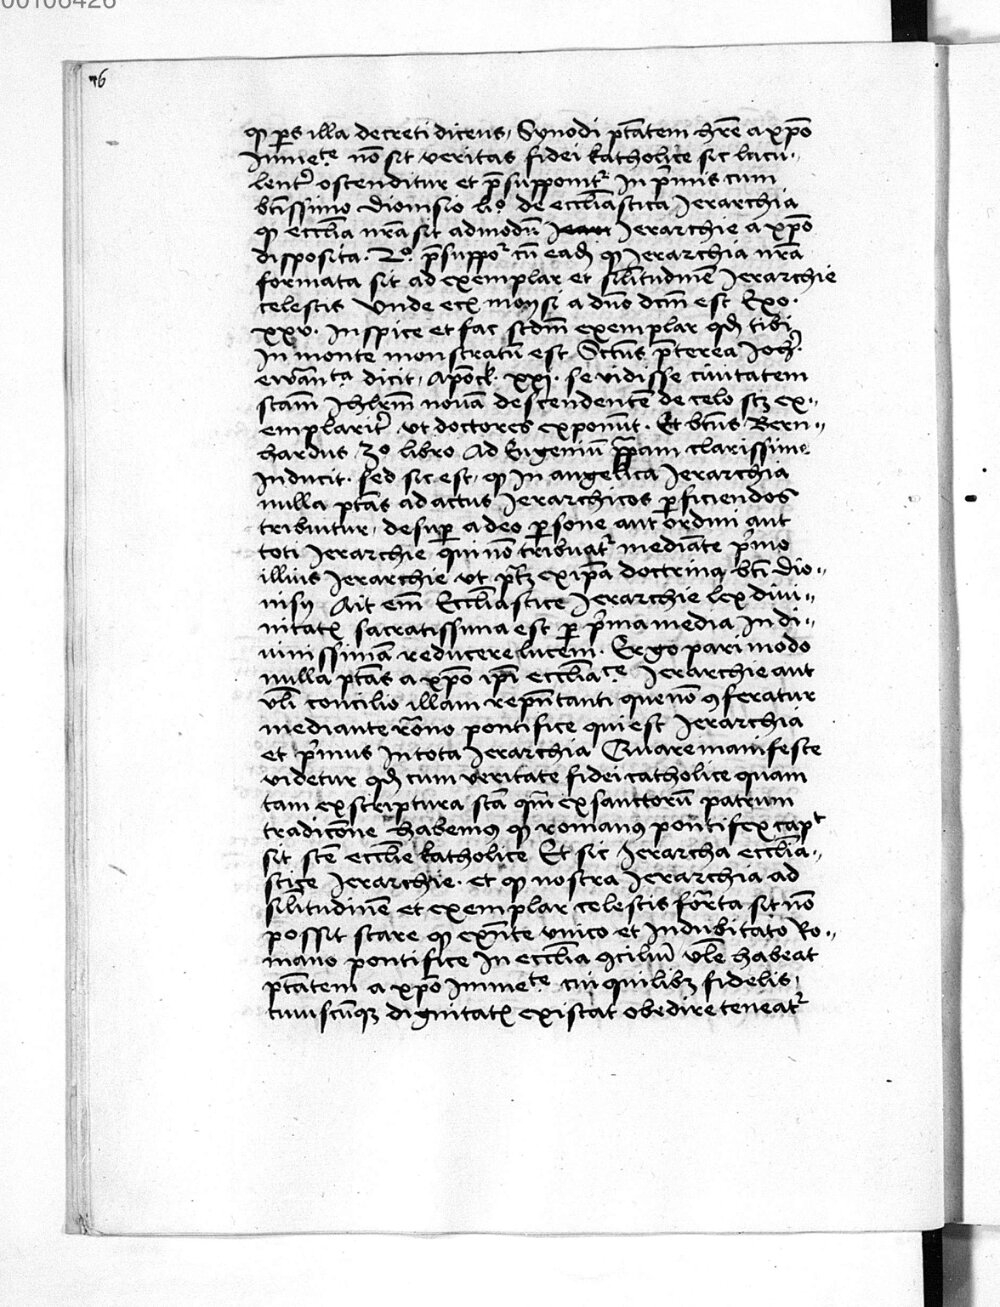 00106426
76
qp ps illa decreti dicens, Synodi ptātem hr̄e a xp̄o
Inmete nō sit veritas fidei katholice sic lucu-
lentr ostenditur et p̄supponitr In p̄mis cum
btīssimo dionisio lio de eccliāstica Jerarchia
qp eccliā nrā sit admodū Jerarchie a xp̄o
disposita. 2o p̄suppor cū ead qp Jerarchia nrā
formata sit ad exemplar et silitudinē Jerarchie
celestis Unde moysi a dnō dcm̄ est Exo.
xxv. Inspice et fac scdm̄ exemplar qd tibi
In monte monstratū est Sctus p̄terea Joh.
ewan ta dicit, Apoc. xxi. se vidisse civitatem
scām Jhlr̄m novā descendentē de celo scz ex-
emplaritr, vt doctores exponūt. Et btūs Bern-
hardus 3o libro Ad Eugeniū ppam clarissime
Inducit. sed sic est, qp In angelica Jerarchia
nulla ptās ad actus Jerarchicos pficiendos
tribuitur, desup a deo psone aut ordini aut
toti Jerarchie qui nō tribuatr mediāte p̄mo
illius Jerarchie vt ptz ex ip̄a doctrina bti dio-
nisij Ait em̄ Eccliāstice Jerarchie lex divi-
nitatis sacratissima est p p̄ma media In di-
vinissimā reducere lucem. Ergo pari modo
nulla ptās a xp̄o ip̄i eccliāce Jerarchie aut
vli concilio illam repn̄tanti que nō 9feratur
mediante rōno pontifice qui est Jerarchia
et p̄mus In tota Jerarchia Quare manifeste
videtur qd cum veritate fidei catholice quam
tam ex scriptura scā qm̄ ex sanctorū patrum
traditōne habem9 qp roman9 pontifex capt
sit scē ecclīe katholice Et sic Jerarcha ecclīa-
stice Jerarchie. et qp nostra Jerarchia ad
silitudinē et exemplar celestis form̄ta sit nō
possit stare qp exn̄te vnico et Indubitato Ro-
mano pontifice In ecclīa 9ciliū vlē habeat
ptātem a xp̄o Inmete cui quilibz fidelis,
cuiuscūqz dignitatis existat obedire teneatr